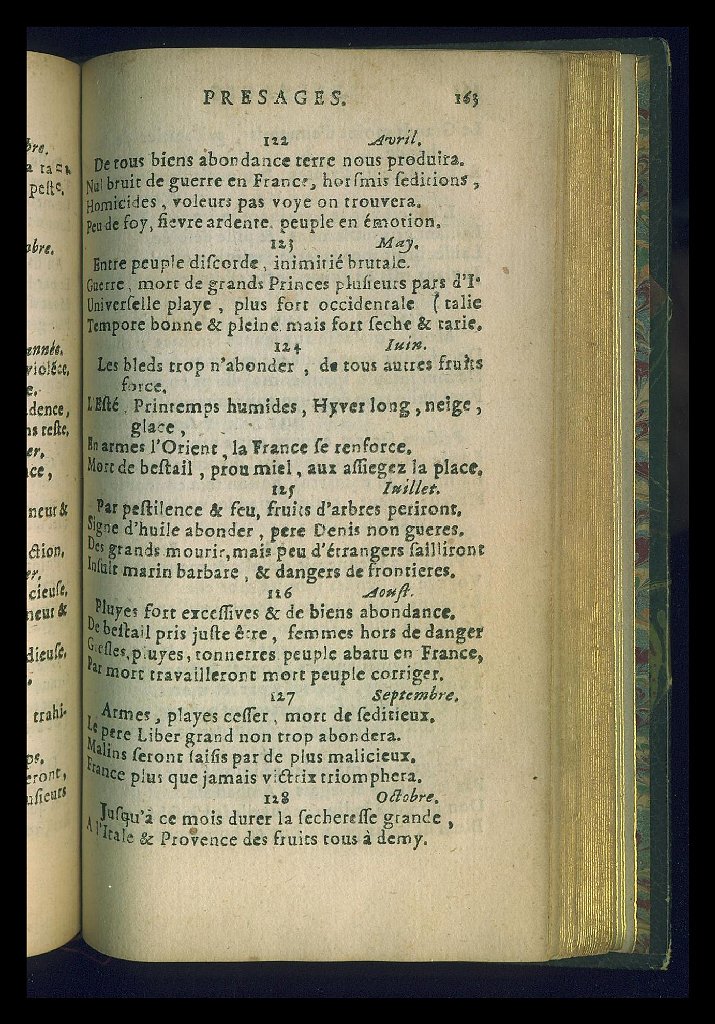 bre.
peste.
abre.
année.
violēce,
e.
dence,
ns reste,
er.
ce,
neur &
ction,
er.
cieuse,
neur &
dieuse,
trahi-
pe.
eront,
usieurs
PRESAGES. 163
122 Avril.
De tous biens abondance terre nous produira.
Nul bruit de guerre en France, horsmis seditions,
Homicides, voleurs pas voye on trouvera.
Peu de foy, fievre ardente. peuple en émotion.
123 May.
Entre peuple discorde, inimitié brutale.
Guerre, mort de grands Princes plusieurs pars d'I-
Universelle playe, plus fort occidentale (talie
Tempore bonne & pleine. mais fort seche & tarie.
124 Iuin.
Les bleds trop n'abonder, de tous autres fruits
force.
L'Esté, Printemps humides, Hyver long, neige,
glace,
En armes l'Orient, la France se renforce.
Mort de bestail, prou miel, aux assiegez la place.
125 Iuillet.
Par pestilence & feu, fruits d'arbres periront,
Signe d'huile abonder, pere Denis non gueres.
Des grands mourir, mais peu d'étrangers sailliront
Insult marin barbare, & dangers de frontieres.
126 Aoust.
Pluyes fort excessives & de biens abondance.
De bestail pris juste être, femmes hors de danger
Gresles, pluyes, tonnerres peuple abatu en France,
Par mort travailleront mort peuple corriger.
127 Septembre.
Armes, playes cesser, mort de seditieux.
Le pere Liber grand non trop abondera.
Malins seront saisis par de plus malicieux.
France plus que jamais victrix triomphera.
128 Octobre.
Jusqu'à ce mois durer la secheresse grande,
A l'Itale & Provence des fruits tous à demy.